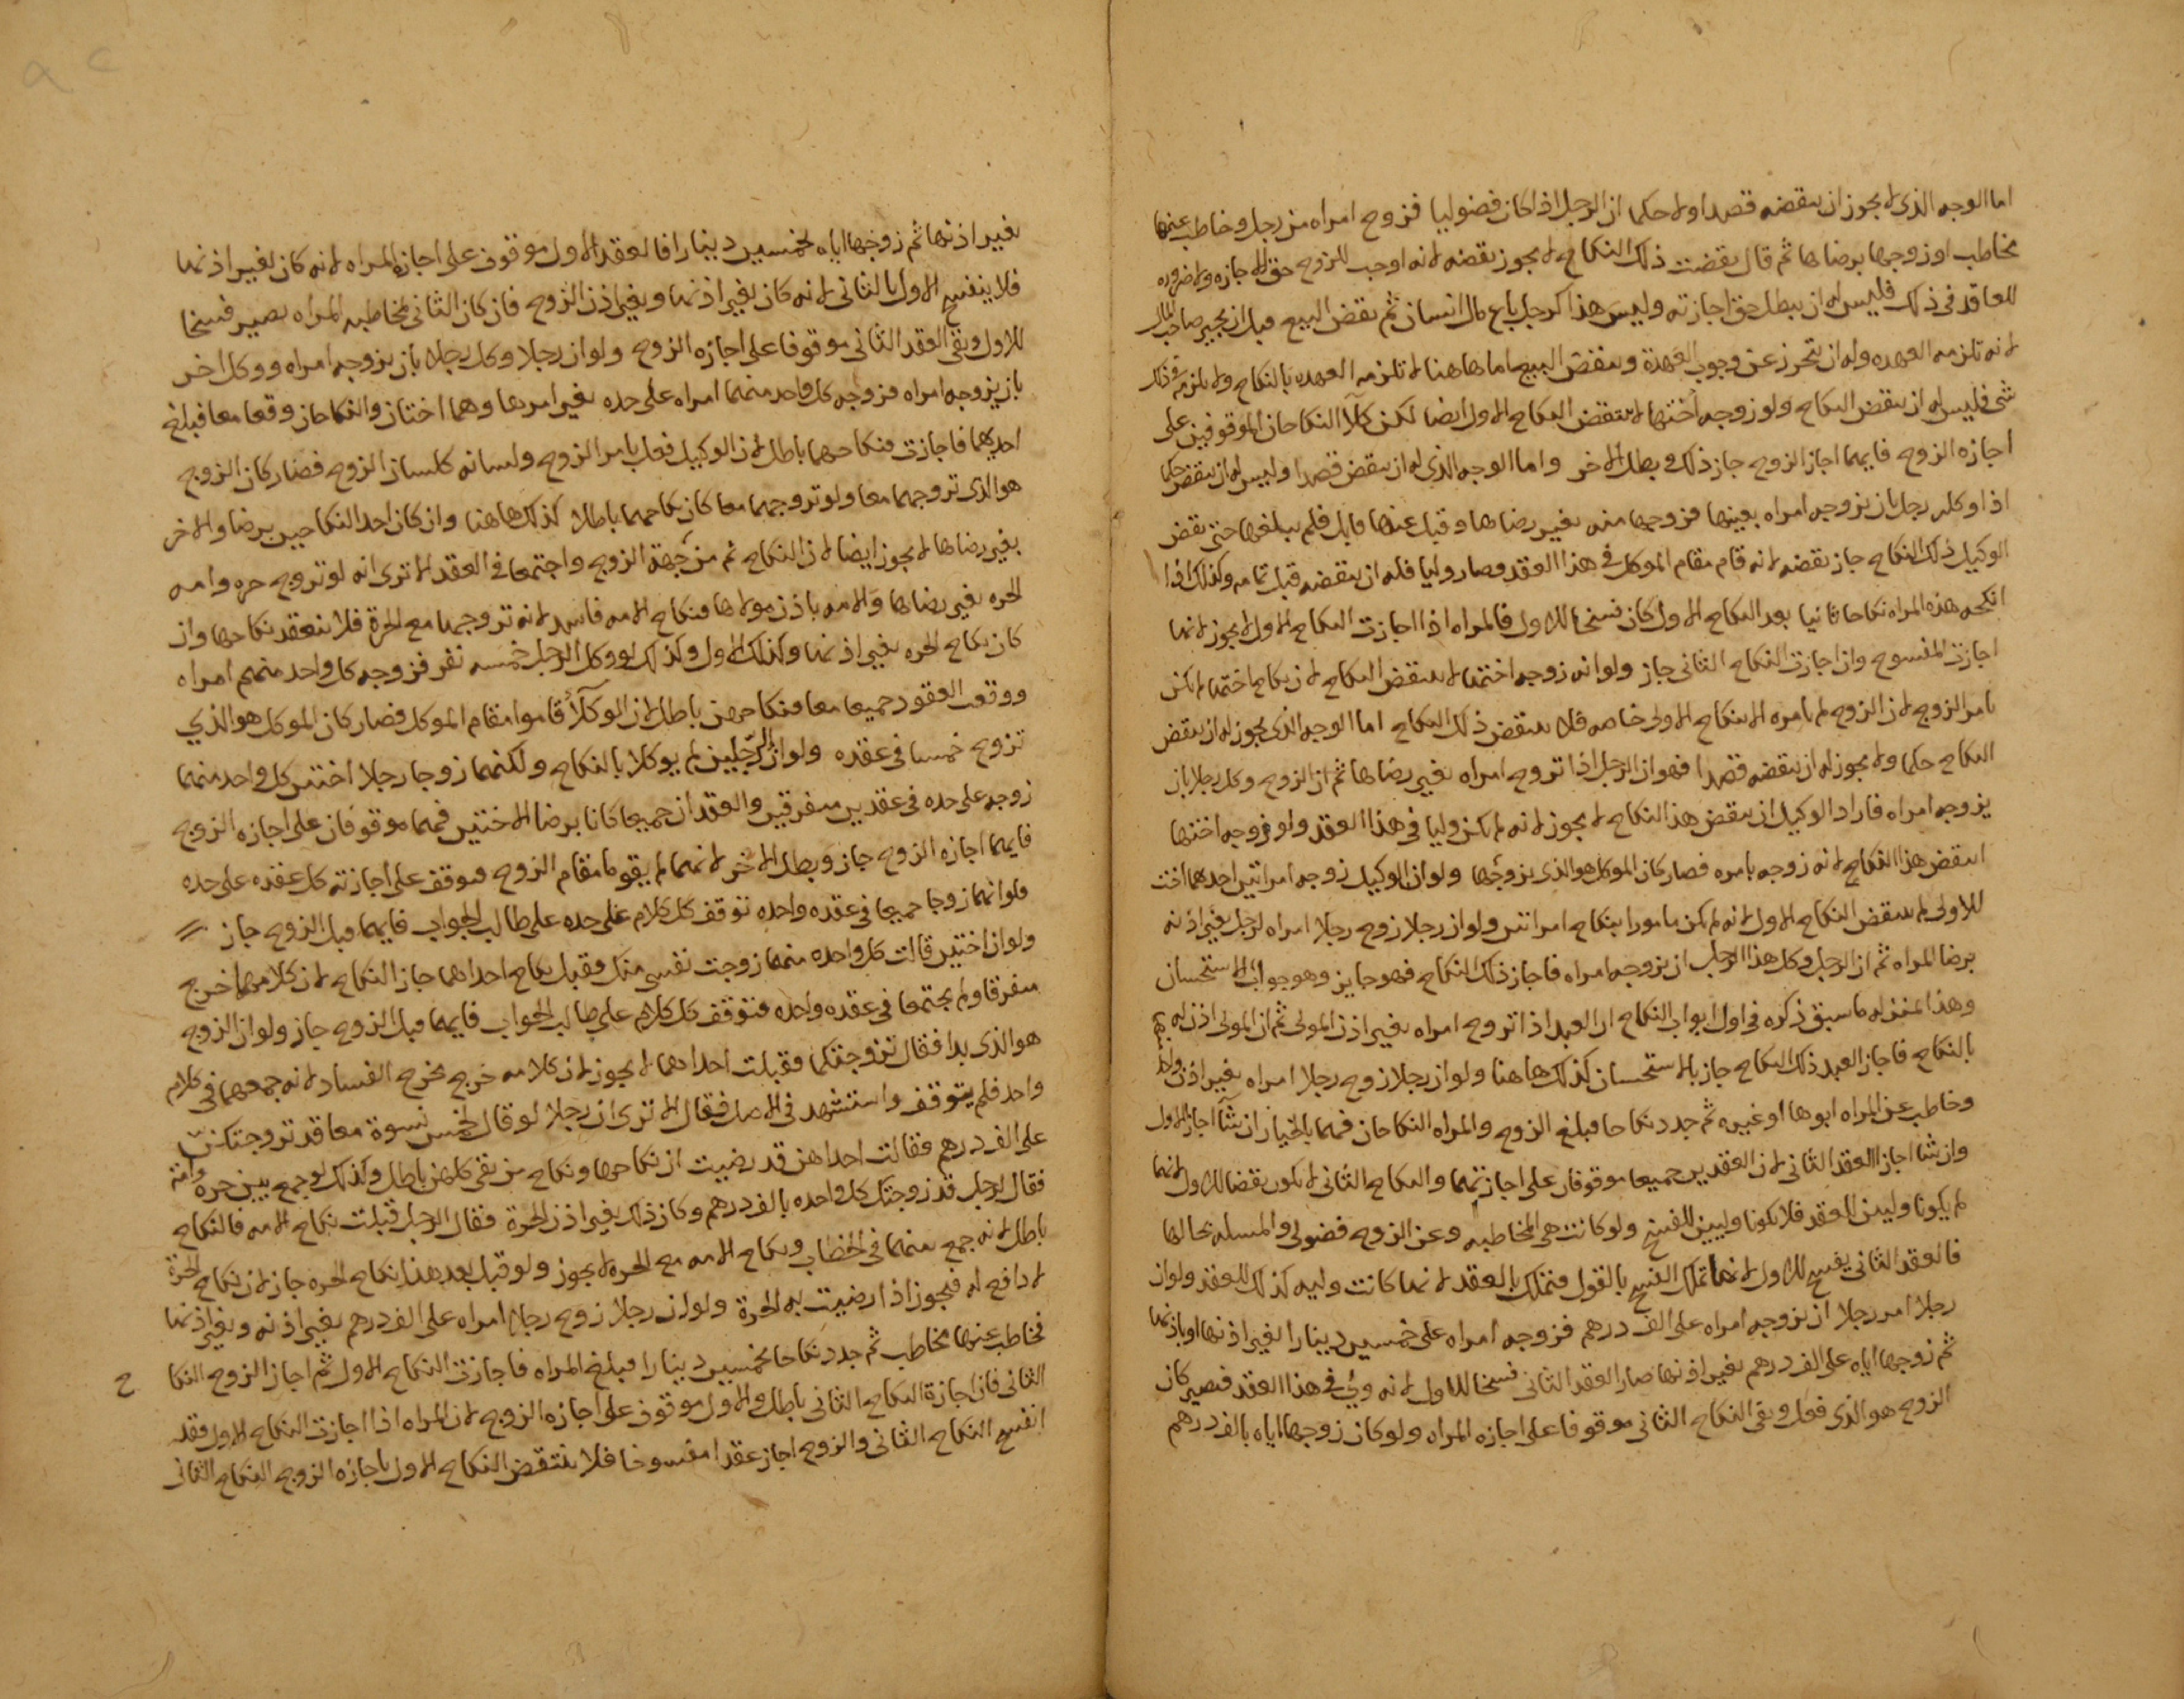 اما الوجه الذى لا يجوز ان ينقضه قصدا ولا حكما ان الرجل اذا كان فضوليا فزوج امراه من رجل وخاطب عنها
مخاطب او زوجها برضاها ثم قال نقضت ذلك النكاح لا يجوز نقضه لانه اوجب للزوج حق الاجازه ولا ضروره
للعاقد فى ذلك فليس له ان يبطل حق اجازته وليس هذا كرجل باع مال انسان ثم نقض البيع قبل ان يجيز صاحب المال
لانه تلزمه العهده وله ان يتحرز عن وجوب العهدة وينقض البيع اما هاهنا لا تلزمه العهده بالنكاح ولا يلزمه فى ذلك
شى فليس له ان ينقض النكاح ولو زوجه اختها لا ينتقض النكاح الاول ايضا لكن كلا النكاحان الموقوفين على
اجازه الزوج فايهما اجاز الزوج جاز ذلك وبطل الاخر واما الوجه الذى له ان ينقض قصدا وليس له ان ينقض حكما
اذا وكله رجل بان يزوجه امراه بعينها فزوجها منه بغير رضاها وقبل عنها قابل فلم يبلغها حتى نقض
الوكيل ذلك النكاح جاز نقضه لانه قام مقام الموكل فى هذا العقد وصار وليا فله ان ينقضه قبل تمامه وكذلك اذا
انكحه هذه المراه نكاحا ثانيا بعد النكاح الاول كان فسخا للاول فالمراه اذا اجازت النكاح الاول لا يجوز لانها
اجازت المفسوح وان اجازت النكاح الثانى جاز ولو انه زوجه اختها لا ينتقض النكاح لان نكاح اختها لم يكن
بامر الزوج لان الزوج لم يامره الا بنكاح الاولى خاصه فلا ينتقض ذلك النكاح اما الوجه الذى يجوز له ان ينقض
النكاح حكما ولا يجوز له ان ينقضه قصدا فهو ان الرجل اذا تزوج امراه بغير رضاها ثم ان الزوج وكل رجلا بان
يزوجه امراه فاراد الوكيل ان ينقض هذا النكاح لا يجوز لانه لم يكن وليا فى هذا العقد ولو زوجه اختها
انتقض هذا النكاح لانه زوجه بامره فصار كان الموكل هو الذى يزوجها ولو ان الوكيل زوجه امراتين احدهما اخت
للاولى لم ينتقض النكاح الاول لانه لم يكن مامورا بنكاح امراتين ولو ان رجلا زوج رجلا امراه لرجل بغير اذنه
برضا المراه ثم ان الرجل وكل هذا الرجل ان يزوجه امراه فاجاز ذلك النكاح فهو جايز وهو جواب الاستحسان
وهذا بمنزله ما سبق ذكره فى اول ابواب النكاح ان العبد اذا تزوج امراه بغير اذن المولى ثم ان المولى اذن له
بالنكاح فاجاز العبد ذلك النكاح جاز بالاستحسان كذلك هاهنا ولو ان رجلا زوج رجلا امراه بغير اذن
وخاطب عن المراه ابوها او غيره ثم جدد نكاحا فبلغ الزوج والمراه النكاحان فهما بالخيار ان شآ اجاز الاول
وان شآ اجاز العقد الثانى لان العقدين جميعا موقوفان على اجازتهما والنكاح الثانى لا يكون نقضا للاول لانهما
لم يكونا وليين العقد فلا يكونا وليين للفسخ ولو كانت هى المخاطبه وعن الزوج فضولى والمسله بحالها
فالعقد الثانى يفسخ للاول لانها تملك الفسخ بالقول فتملك بالعقد لانها كانت وليه كذلك للعقد ولو ان
رجلا امر رجلا ان يزوجه امراه على الف درهم فزوجه امراه على خمسين دينارا بغير اذنها او باذنها
ثم زوجها اياه على الف درهم بغير اذنها صار العقد الثانى فسخا للاول لانه ولى فى هذا العقد فيصير كان
الزوج هو الذى فعل وبقى النكاح الثانى موقوفا على اجازه المراه ولو كان زوجها اياه بالف درهم
بغير اذنها ثم زوجها اياه بخمسين دينارا فالعقد الاول موقوف على اجازه المراه لانه كان بغير اذنها
فلا ينفسخ الاول بالثانى لانه كان بغير اذنها وبغير اذن الزوج فان كان الثانى مخاطبه المراه يصير فسخا
للاول وبقى العقد الثانى موقوفا على اجازه الزوج ولو ان رجلا وكل رجلا بان يزوجه امراه ووكل اخر
بان يزوجه امراه فزوجه كل واحد منهما امراه على حده بغير امرها وهما اختان والنكاحان وقعا معا فبلغ
احديهما فاجازت فنكاحهما باطل لان الوكيل فعل بامر الزوج ولسانه كلسان الزوج فصار كان الزوج
هو الذى تزوجهما معا ولو تزوجهما معا كان نكاحهما باطلا كذلك هاهنا وان كان احد النكاحين برضا والاخر
بغير رضاها لا يجوز ايضا لان النكاح ثم من جهة الزوج واجتمعا فى العقد الا ترى انه لو تزوج حره وامه
الحره بغير رضاها والامه باذن مولاها فنكاح الامه فاسد لانه تزوجها مع الحرة فلا ينعقد نكاحها وان
كان نكاح الحره بغير اذنها وكذلك الاول وكذلك لو وكل الرجل خمسه نفر فزوجه كل واحد منهم امراه
ووقعت العقود جميعا معا فنكاحهن باطل لان الوكلآ قاموا مقام الموكل فصار كان الموكل هو الذي
تزوج خمسا فى عقده ولو ان الرجلين لم يوكلا بالنكاح ولكنهما زوجا رجلا اختين كل واحد منهما
زوجه على حده فى عقدين متفرقين والعقدان جميعا كانا برضا الاختين فهما موقوفان على اجازه الزوج
فايهما اجازه الزوج جاز وبطل الاخر لانهما لم يقوما مقام الزوج فيوقف على اجازته كل عقده على حده
فلو انهما زوجا جميعا فى عقده واحده توقف كل كلام على حده على طالب الجواب فايهما قبل الزوج جاز
ولو ان اختين قالت كل واحده منهما زوجت نفسى منك فقبل نكاح احداهما جاز النكاح لان كلامهما خرج
متفرقا ولم يجتمعا فى عقده واحده فتوقف كل كلام على طالب الجواب فايهما قبل الزوج جاز ولو ان الزوج
هو الذى بدا فقال تزوجتكما فقبلت احداهما لا يجوز لان كلامه خرج مخرج الفساد لانه جمعهما فى كلام
واحد فلم يتوقف واستشهد فى الاصل فقال الا ترى ان رجلا لو قال لخمس نسوة معا قد تزوجتكن
على الف درهم فقالت احداهن قد رضيت ان نكاحها ونكاح من بقى كلهن باطل وكذلك لو جمع بين حره وامة
فقال لرجل قد زوجتك كل واحده بالف درهم وكان ذلك بغير اذن الحرة فقال الرجل قبلت نكاح الامه فالنكاح
باطل لانه جمع بينهما فى الخطاب ونكاح الامه مع الحره لا يجوز ولو قبل بعد هذا نكاح الحره جاز لان نكاح الحرة
لا دافع له فيجوز اذا رضيت به الحرة ولو ان رجلا زوج رجلا امراه على الف درهم بغير اذنه وبغير اذنها
فخاطب عنها مخاطب ثم جدد نكاحا بخمسين دينارا فبلغ المراه فاجازت النكاح الاول ثم اجاز الزوج النكا ح
الثانى فان اجازة النكاح الثانى باطل والاول موقوف على اجازه الزوج لان المراه اذا اجازت النكاح الاول فقد
انفسخ النكاح الثانى والزوج اجاز عقدا مفسوخا فلا ينتقض النكاح الاول باجازه الزوج النكاح الثانى